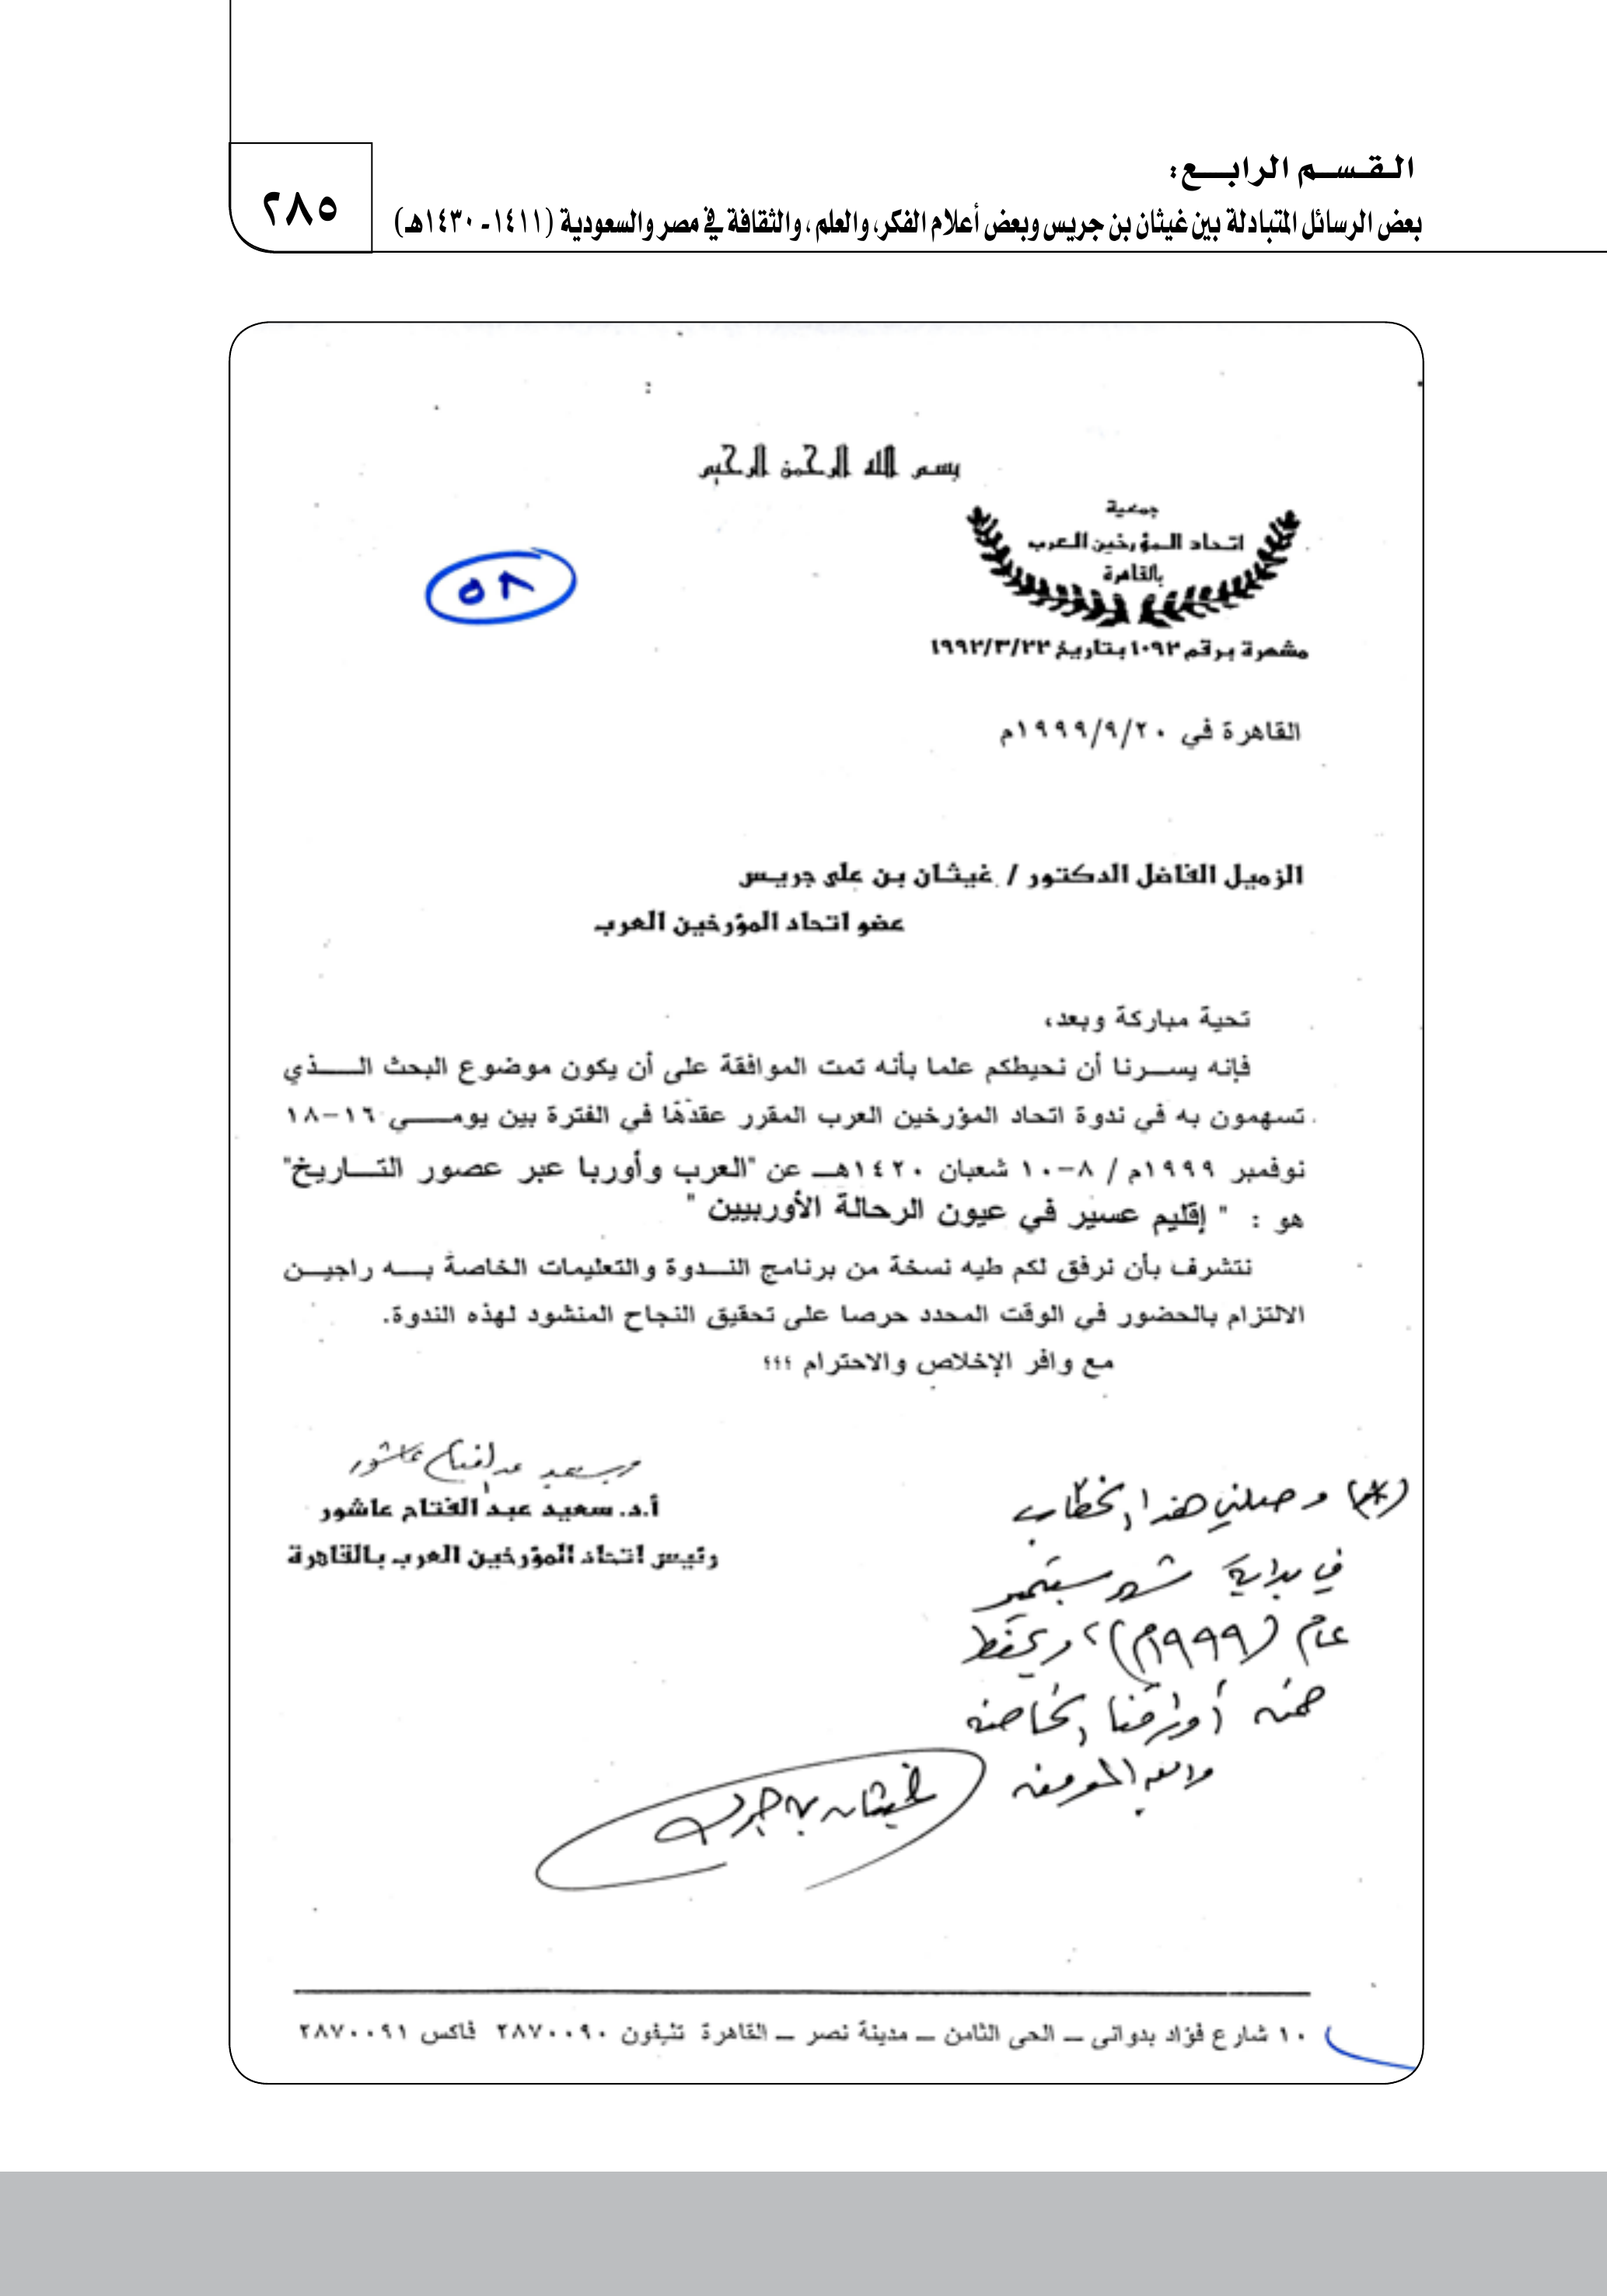 القسم الرابع:
بعض الرسائل المتبادلة بين غيثان بن جريس وبعض أعلام الفكر، والعلم، والثقافة في مصر والسعودية (١٤١١- ١٤٣٠هـ)
٢٨٥
بسم الله الرحمن الرحيم
جمعية
اتحاد المؤرخين العرب
بالقاهرة
مشهرة برقم ١٠٩٢ بتاريخ ١٩٩٢/٣/٢٢
٥٨
القاهرة في ١٩٩٩/٩/٢٠م
الزميل الفاضل الدكتور / غيثان بن على جريس
عضو اتحاد المؤرخين العرب
تحية مباركة وبعد،
فإنه يسرنا أن نحيطكم علما بأنه تمت الموافقة على أن يكون موضوع البحث الذي
تسهمون به في ندوة اتحاد المؤرخين العرب المقرر عقدها في الفترة بين يومي ١٦-١٨
نوفمبر ١٩٩٩م / ٨-١٠ شعبان ١٤٢٠هـ عن "العرب وأوربا عبر عصور التاريخ"
هو : " إقليم عسير في عيون الرحالة الأوربيين "
نتشرف بأن نرفق لكم طيه نسخة من برنامج الندوة والتعليمات الخاصة به راجين
الالتزام بالحضور في الوقت المحدد حرصا على تحقيق النجاح المنشود لهذه الندوة.
مع وافر الإخلاص والاحترام ؛؛؛
سعيد عبد الفتاح عاشور
أ.د. سعيد عبد الفتاح عاشور
رئيس اتحاد المؤرخين العرب بالقاهرة
(*) وصلني هذا الخطاب
في بداية شهر سبتمبر
عام (١٩٩٩م)، ويحفظ
ضمن أوراقنا الخاصة
والله الموفق
غيثان بن جريس
١٠ شارع فؤاد بدوانى – الحى الثامن – مدينة نصر – القاهرة تليفون ٢٨٧٠٠٩٠ فاكس ٢٨٧٠٠٩١